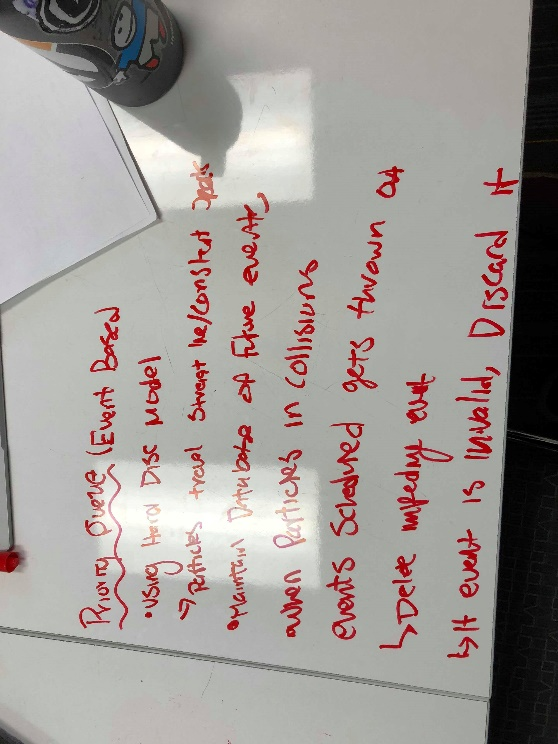 Priority Queue (Event Based
• Using Hard Disc Model
→ Particles travel straight line/constant speeds
• Maintain Database of future events,
• When Particles in Collisions
events scheduled gets thrown out
↳ Delete impeding event
↳ If event is invalid, Discard it